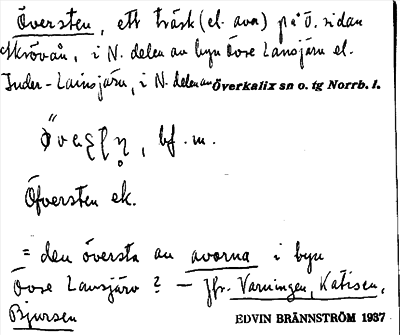 Översten, ett träsk (el. ava) på ö. sidan
Skrövån, i N. delen av byn Övre Lansjärv el.
Inder-Lainsjärv, i N. delen av Överkalix sn o. tg Norrb. l.
, bf. m.
Öfversten ek.
= den översta av avorna i byn
Övre Lansjärv? – Jfr. Varningen, Katisen,
Bjursen EDVIN BRÄNNSTRÖM 1937